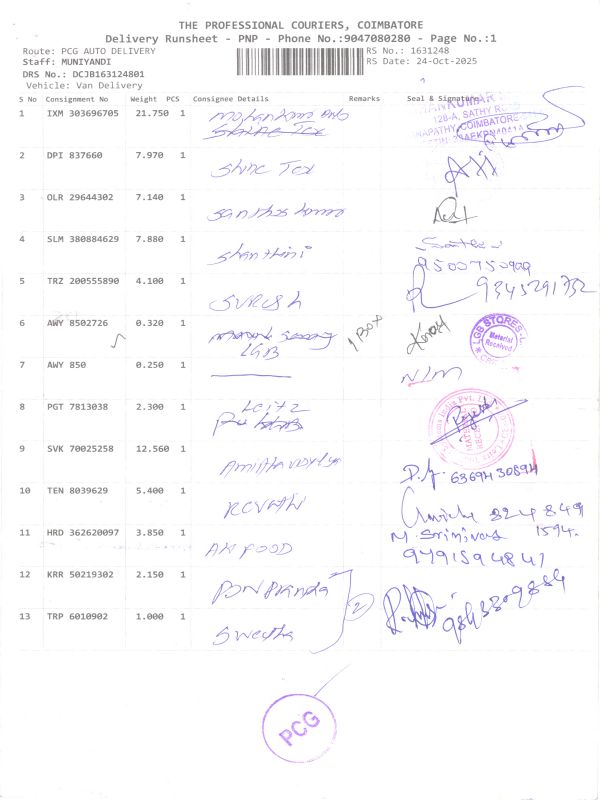 THE PROFESSIONAL COURIERS, COIMBATORE
Delivery Runsheet - PNP - Phone No.:9047080280 - Page No.:1
Route: PCG AUTO DELIVERY
RS No.: 1631248
Staff: MUNIYANDI
RS Date: 24-Oct-2025
DRS No.: DCJB163124801
Vehicle: Van Delivery
S No Consignment No Weight PCS Consignee Details Remarks Seal & Signature
1 IXM 303696705 21.750 1
128-A, SATHY
COIMBATORE
2 DPI 837660 7.970 1 Shine Tex
3 OLR 29644302 7.140 1 Santhos
4 SLM 380884629 7.880 1 Shanthini
9500750909
5 TRZ 200555890 4.100 1 SURESH 9345291752
6 AWY 8502726 0.320 1 LGB 1 BOX
LGB STORES
Material Received
7 AWY 850 0.250 1 NIM
8 PGT 7813038 2.300 1 Leitz
9 SVK 70025258 12.560 1 Amirtha vidyalya
6369430894
10 TEN 8039629 5.400 1 REVATHI
824849
11 HRD 362620097 3.850 1 AM FOOD
M. Srinivas 1594.
9791594841
12 KRR 50219302 2.150 1
2
13 TRP 6010902 1.000 1 Swetha
9843309884
PCG